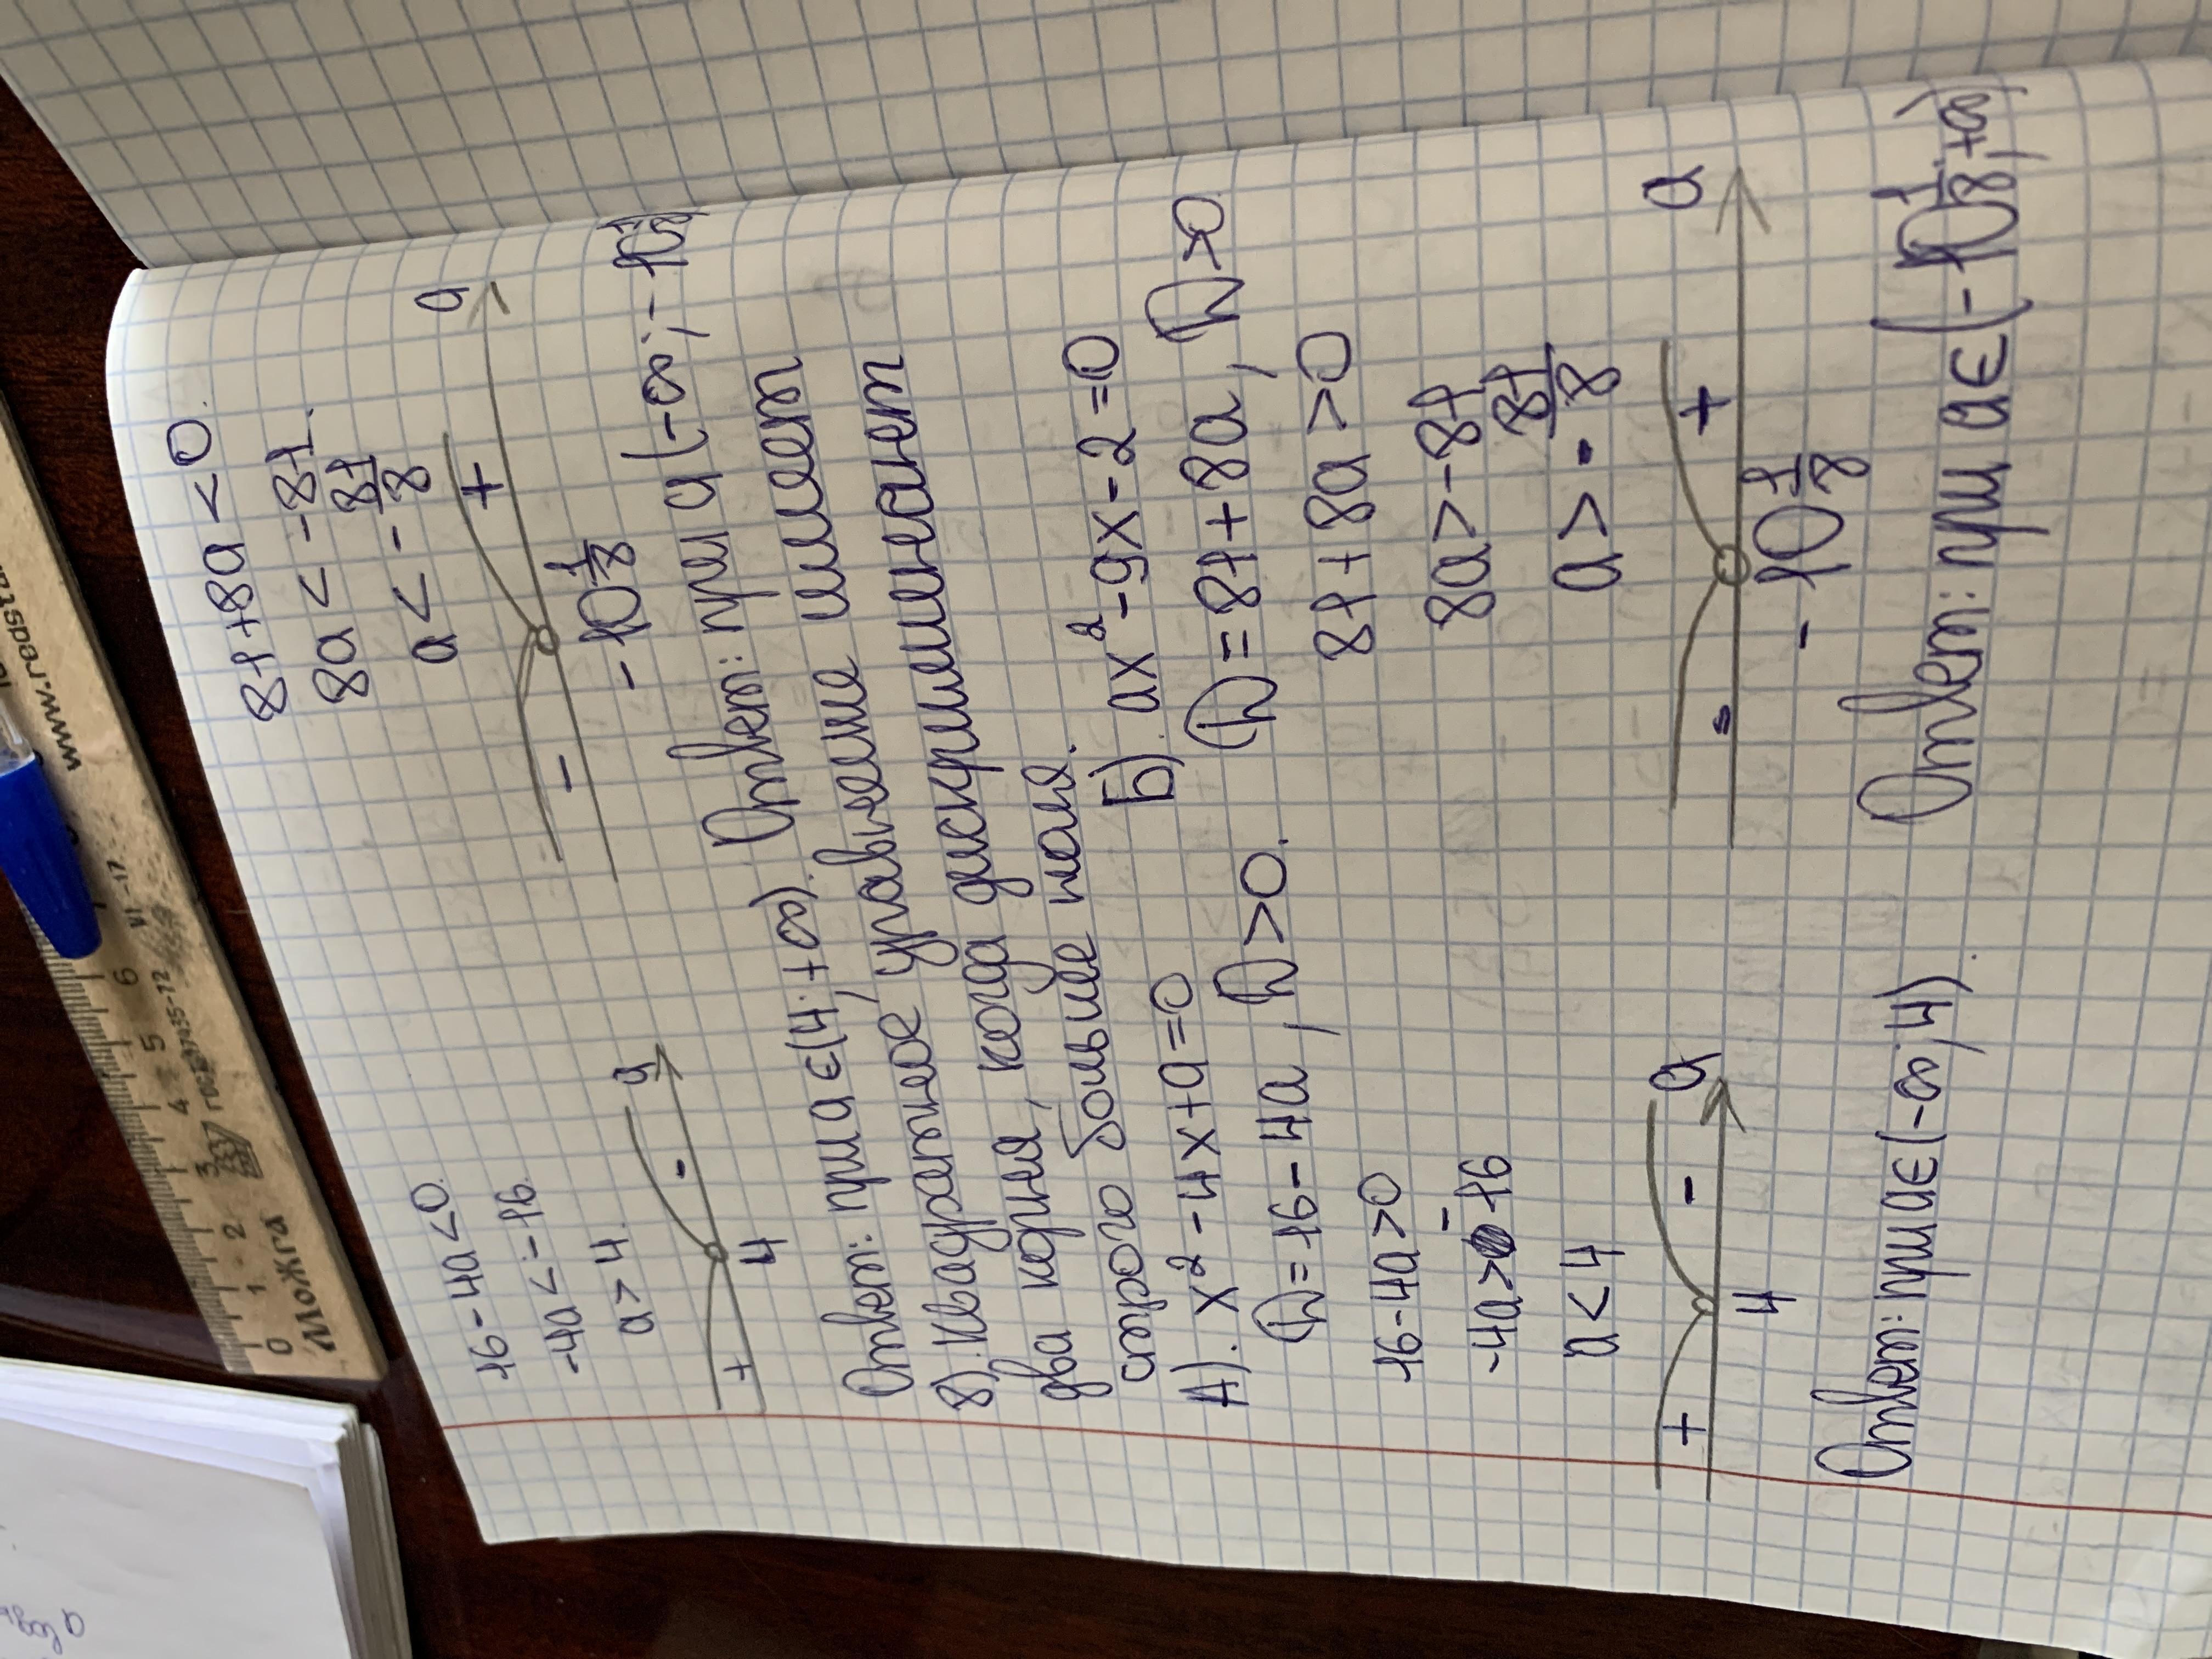 16-4a<0.
-4a<-16.
a>4.
+ - a
4
Ответ: при a∈(4;+∞).
81+8a<0.
8a<-81.
a<-81/8
- + a
-10 1/8
Ответ: при a(-∞;-10 1/8)
8). Квадратное уравнение имеет
два корня, когда дискриминант
строго больше ноля.
А). x²-4x+a=0
D=16-4a, D>0.
16-4a>0
-4a>-16
a<4
+ - a
4
Ответ: при a∈(-∞;4).
Б). ax²-9x-2=0
D=81+8a, D>0.
81+8a>0
8a>-81
a>-81/8
- + a
-10 1/8
Ответ: при a∈(-10 1/8;+∞)
0 1 2 3 4 5 6
Можга
ГОСТ 17435-72
VI-17